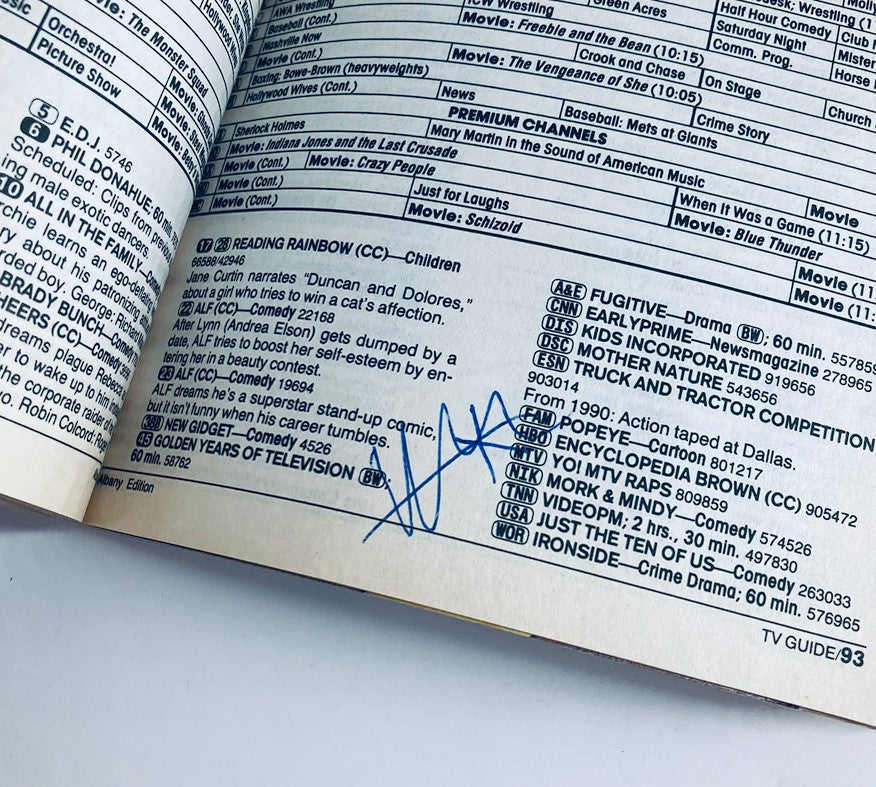 sic
Orchestra!
Picture Show
Movie: The Monster Squad
Hollywood
AWA Wrestling
Baseball (Cont.)
Nashville Now
Movie (Cont.)
Boxing: Bowe-Brown (heavyweights)
Hollywood Wives (Cont.)
ICW Wrestling
Movie: Freebie and the Bean (10:15)
Movie: The Vengeance of She (10:05)
Crook and Chase
On Stage
News
Baseball: Mets at Giants
Crime Story
Church
Green Acres
Half Hour Comedy
Saturday Night
Comm. Prog.
Wrestling (1
Club
Mister
Horse
PREMIUM CHANNELS
Sherlock Holmes
Mary Martin in the Sound of American Music
Movie: Indiana Jones and the Last Crusade
Movie (Cont.)
Movie: Crazy People
Movie (Cont.)
Just for Laughs
When It Was a Game (11:15)
Movie
Movie (Cont.)
Movie: Schizoid
Movie: Blue Thunder
Movie (11
Movie (11:
5 E.D.J. 5746
6 PHIL DONAHUE; 60
Scheduled: Clips from
ing male exotic dancers
10 ALL IN THE FAMILY—
rchie learns an ego-deflating
ry about his patronizing
rded boy. George: Richard
BRADY BUNCH—Comedy
HEERS (CC)—Comedy
dreams plague Rebecca
er to wake up to him
the corporate raider
vo. Robin Colcord: Roger
17 28 READING RAINBOW (CC)—Children
66588/42946
Jane Curtin narrates "Duncan and Dolores,"
about a girl who tries to win a cat's affection.
22 ALF (CC)—Comedy 22168
After Lynn (Andrea Elson) gets dumped by a
date, ALF tries to boost her self-esteem by en-
tering her in a beauty contest.
23 ALF (CC)—Comedy 19694
ALF dreams he's a superstar stand-up comic,
but it isn't funny when his career tumbles.
38D NEW GIDGET—Comedy 4526
45 GOLDEN YEARS OF TELEVISION BW;
60 min. 58762
A&E FUGITIVE—Drama BW; 60 min. 55785
CNN EARLYPRIME—Newsmagazine 278965
DIS KIDS INCORPORATED 919656
DSC MOTHER NATURE 543656
ESN TRUCK AND TRACTOR COMPETITION
903014
From 1990: Action taped at Dallas.
FAM POPEYE—Cartoon 801217
HBO ENCYCLOPEDIA BROWN (CC) 905472
MTV YO! MTV RAPS 809859
NIK MORK & MINDY—Comedy 574526
TNN VIDEOPM; 2 hrs., 30 min. 497830
USA JUST THE TEN OF US—Comedy 263033
WOR IRONSIDE—Crime Drama; 60 min. 576965
Albany Edition
TV GUIDE/93